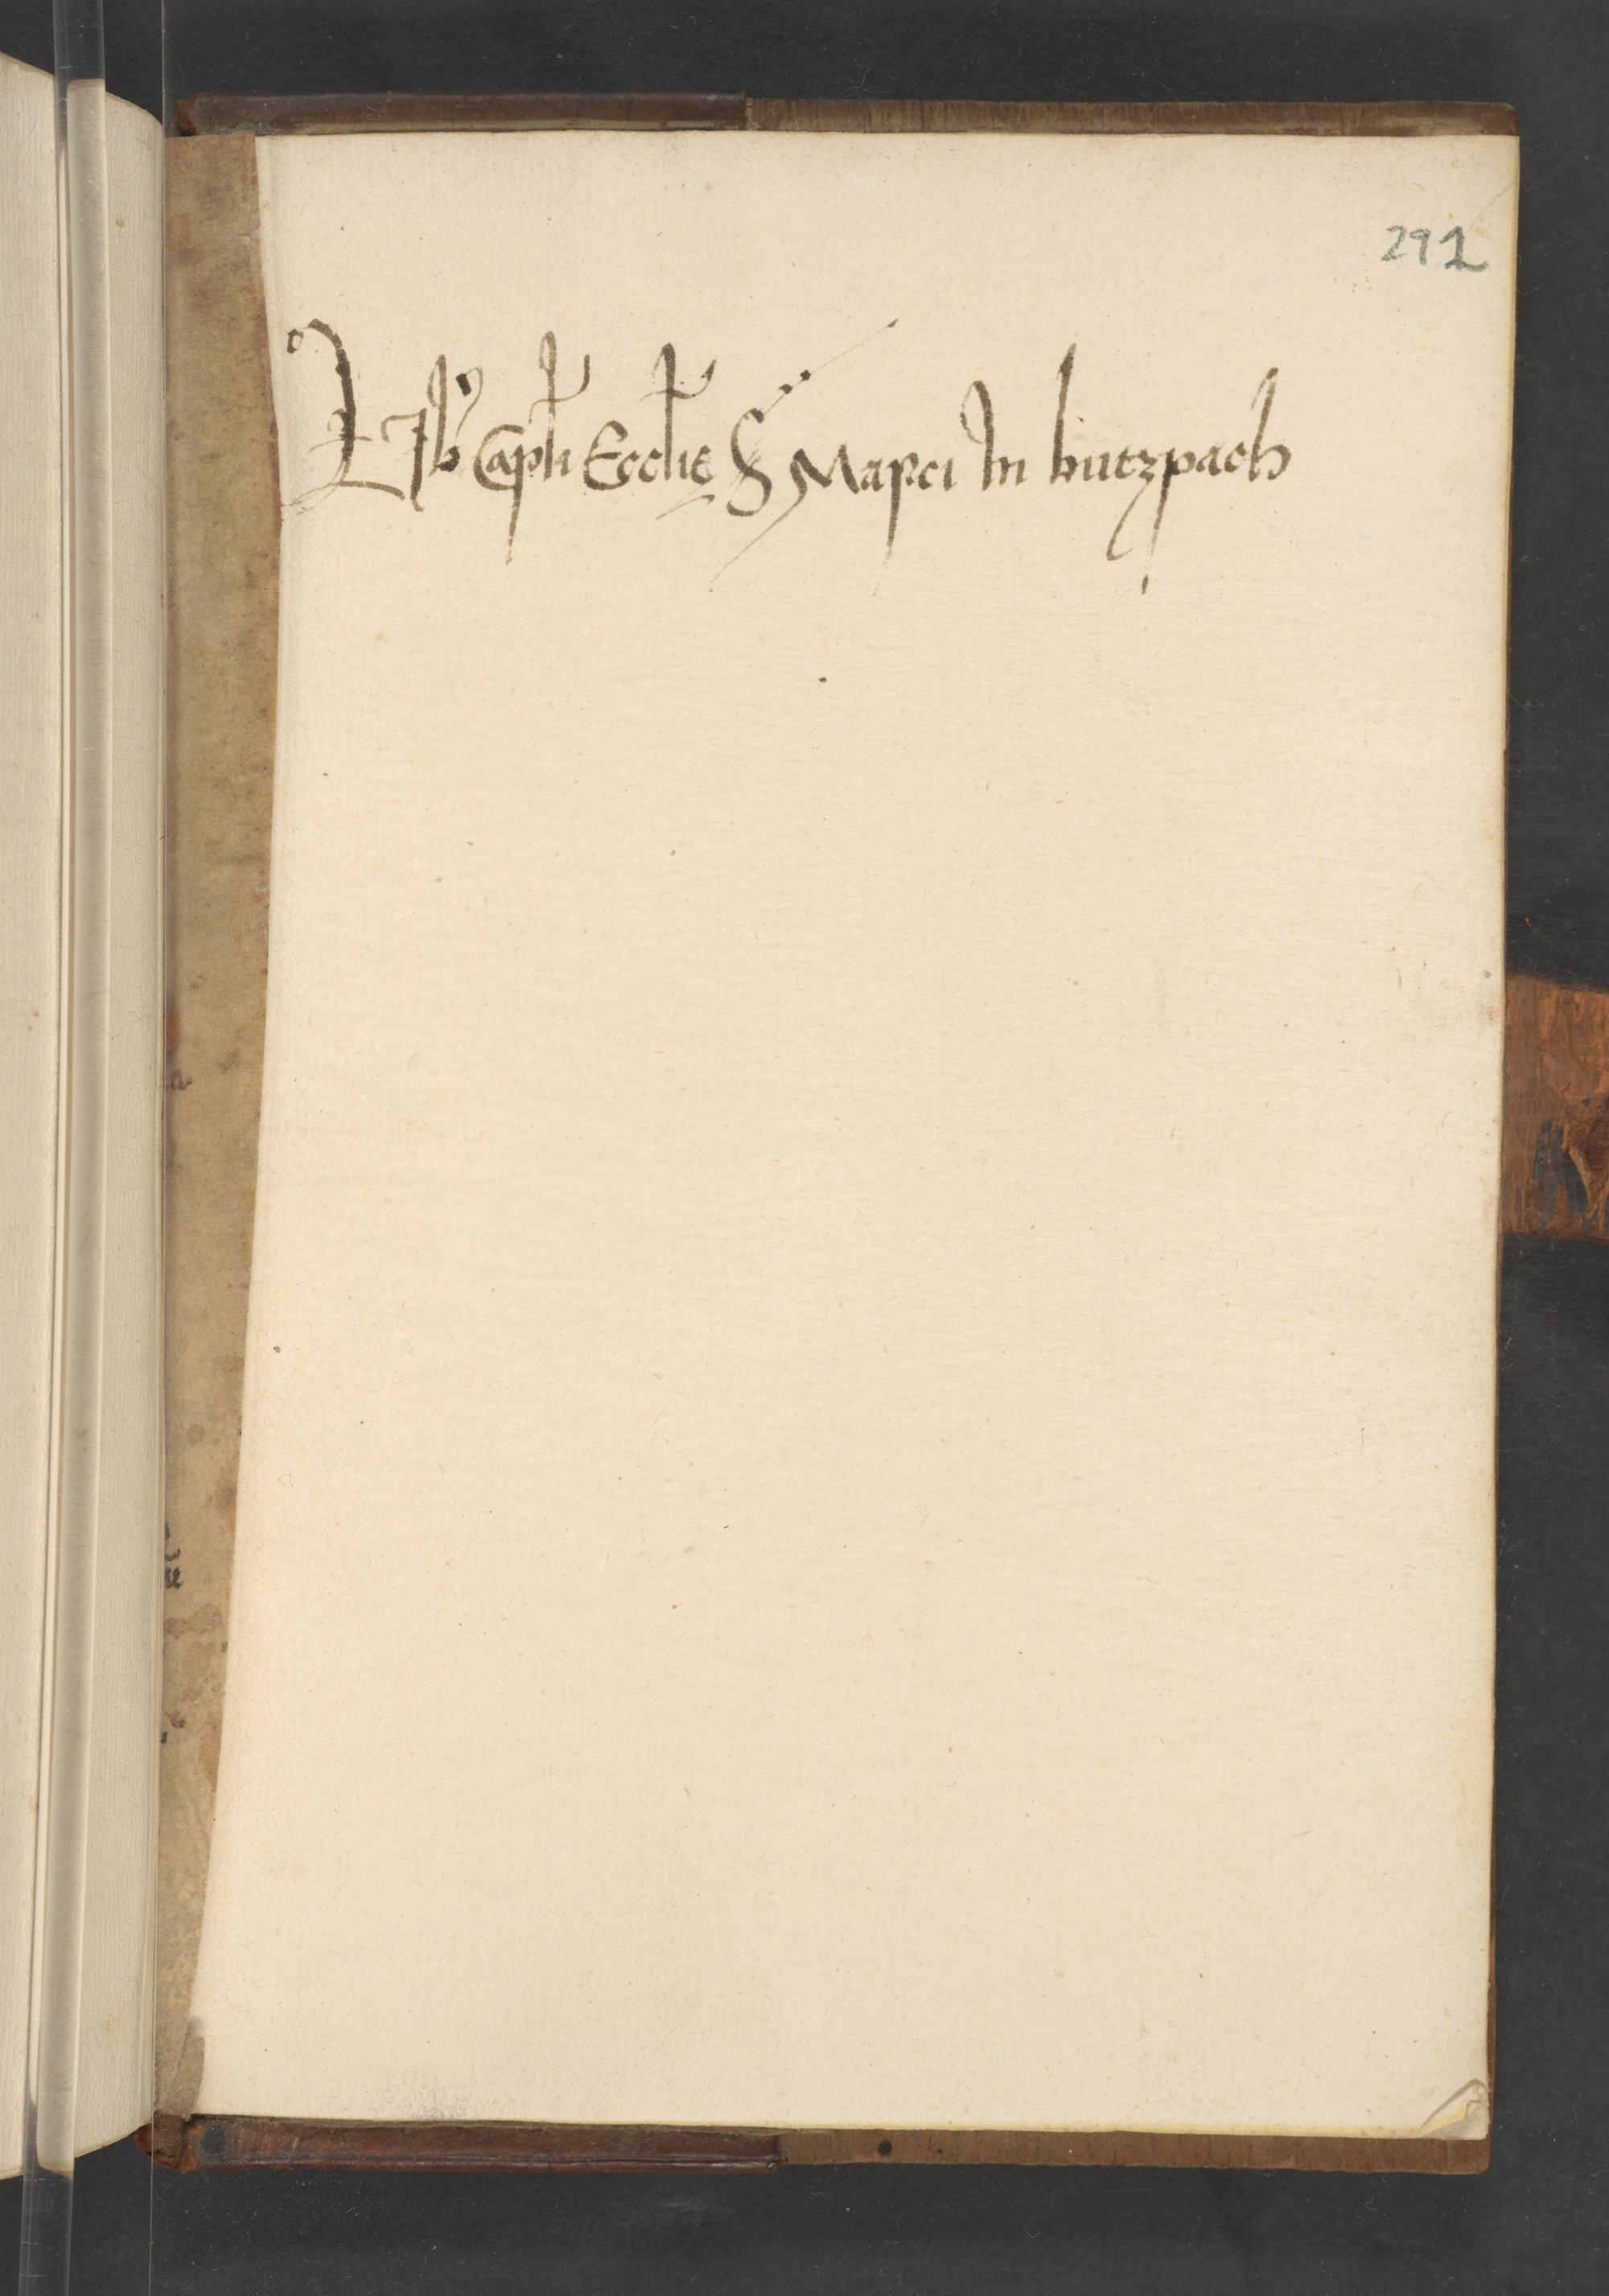 291
LIb' Capli Ecclie S Marci In butzpach